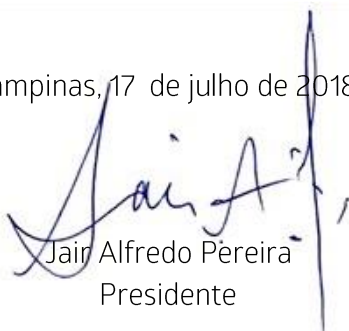 ampinas, 17 de julho de 2018
Jair Alfredo Pereira
Presidente